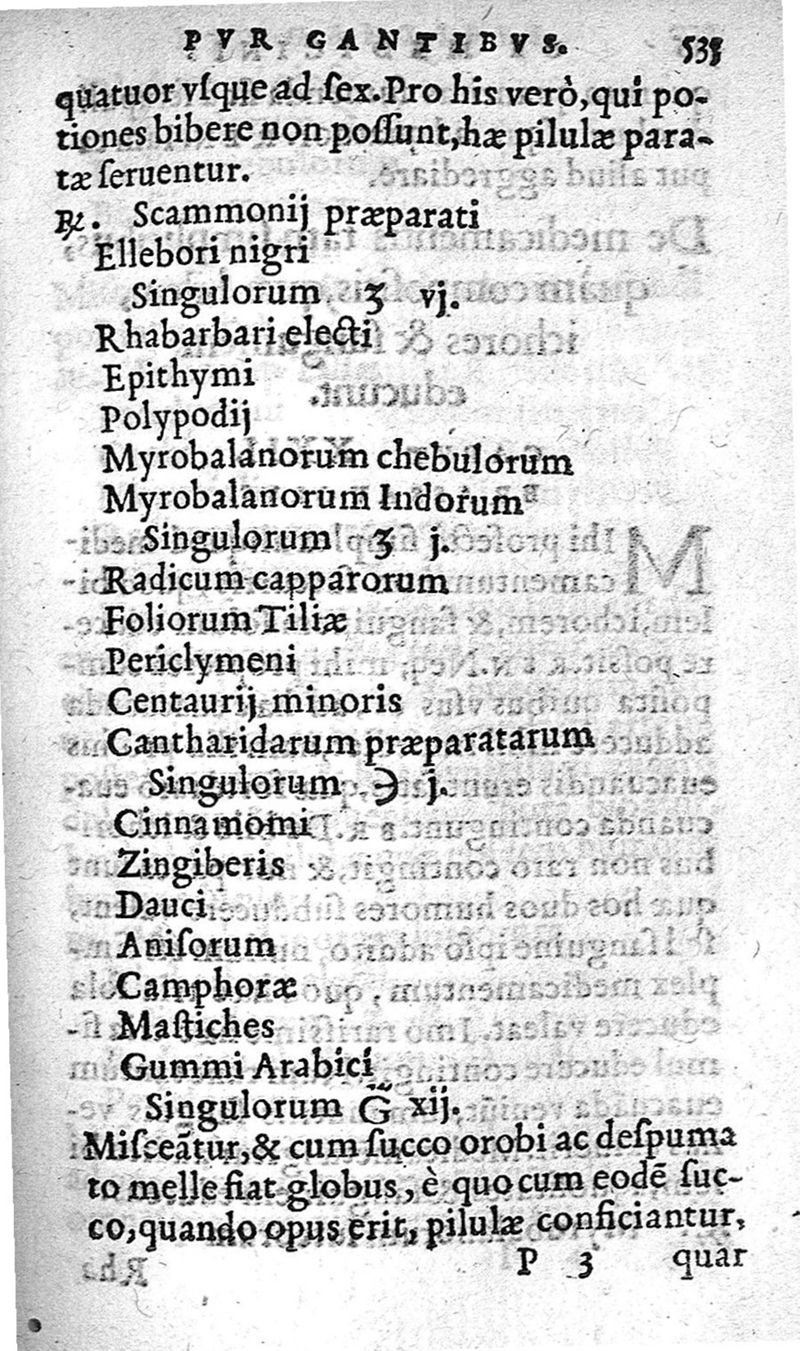 PVRGANTIBVS.
quatuor vſque ad ſex. Pro his verò, qui po-
tiones bibere non poſſunt, hæ pilulæ para-
tæ ſeruentur.
℞. Scammonij præparati
Ellebori nigri
Singulorum ʒ vj.
Rhabarbari electi
Epithymi
Polypodij
Myrobalanorum chebulorum
Myrobalanorum Indorum
Singulorum ʒ j.
Radicum capparorum
Foliorum Tiliæ
Periclymeni
Centaurij minoris
Cantharidarum præparatarum
Singulorum ℈ j.
Cinnamomi
Zingiberis
Dauci
Aniſorum
Camphoræ
Maſtiches
Gummi Arabici
Singulorum G̃ xij.
Miſceãtur, & cum ſucco orobi ac deſpuma
to melle fiat globus, è quo cum eodẽ ſuc-
co, quando opus erit, pilulæ conficiantur,
P 3 quar